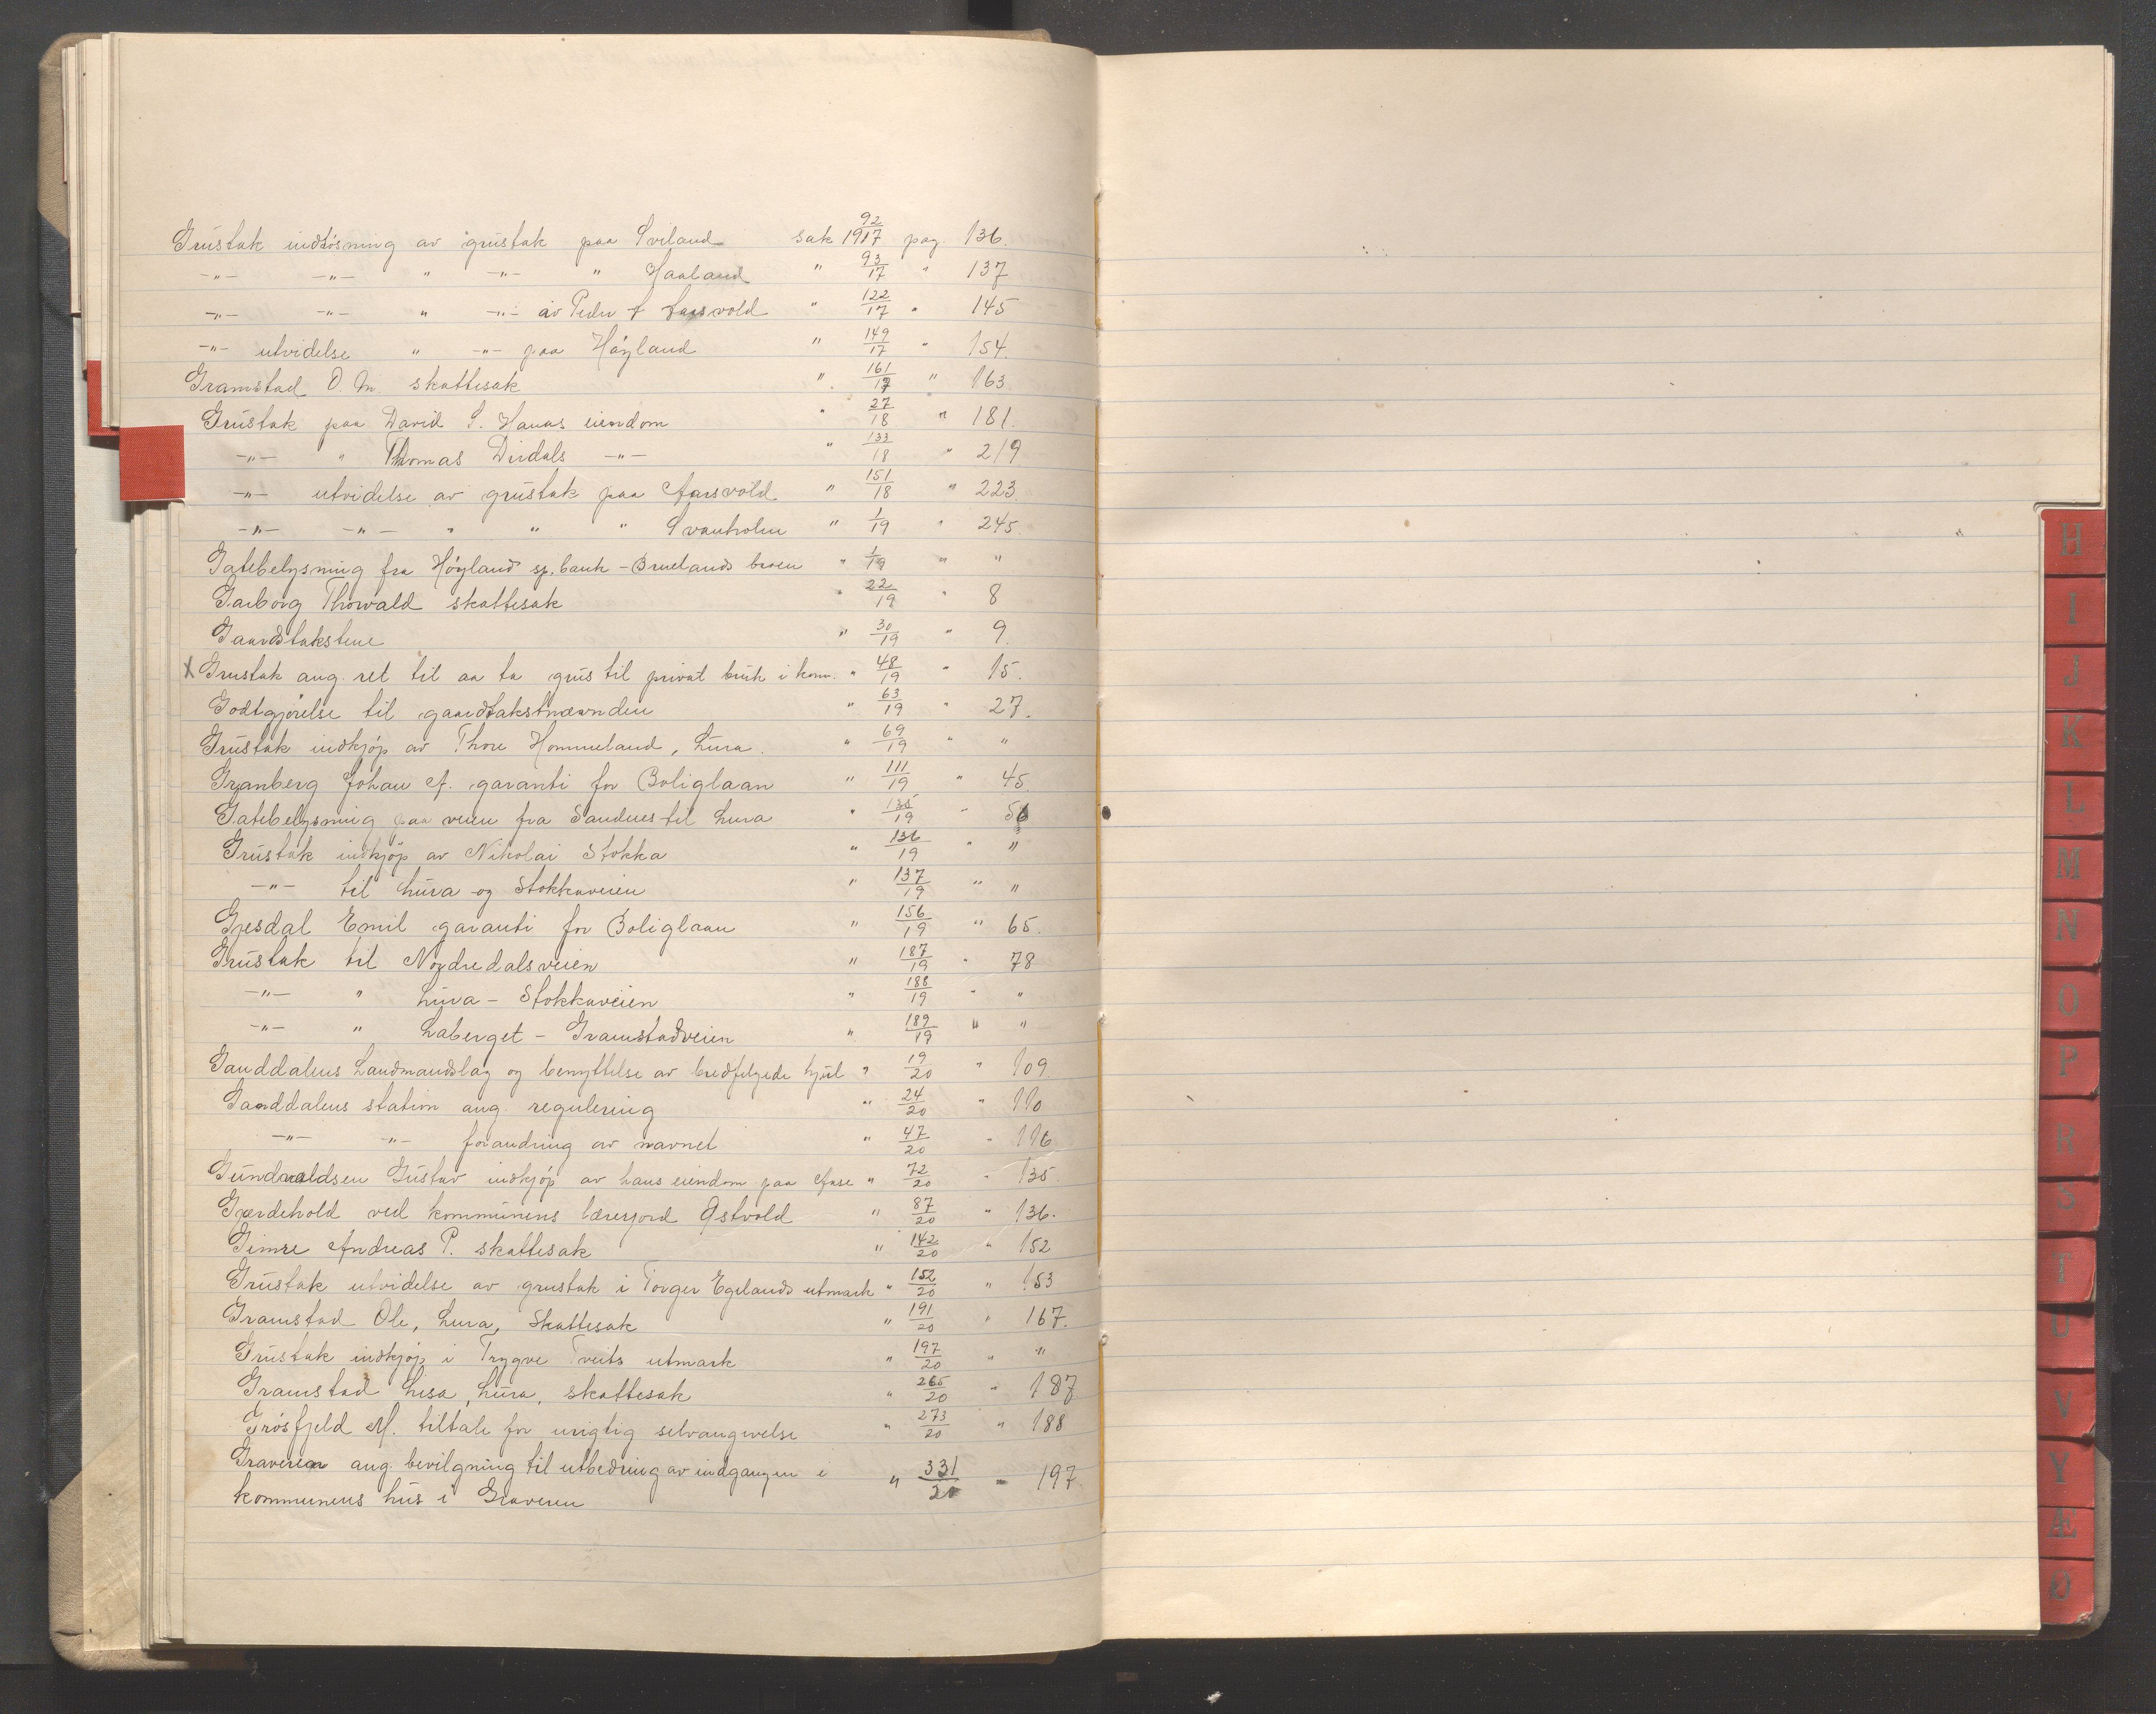 Grustak indløsning av grustak paa Sviland sak 92/1917 pag. 136.
-"- -"- " -"- " Haaland " 93/17 " 137
-"- -"- " -"- av Peder Aarsvold " 122/17 " 145
-"- utvidelse " -"- paa Høyland " 149/17 " 154.
Gramstad O. M. skattesak " 161/17 " 163
Grustak paa David S. Hanas eiendom " 27/18 " 181.
-"- " Thomas Dirdals -"- " 133/18 " 219
-"- utvidelse av grustak paa Aarsvold " 151/18 " 223.
-"- -"- " " " Svanholm " 1/19 " 245.
Gatebelysning fra Høyland sp.bank - Bruelands broen " 1/19 " "
Garborg Thorvald skattesak " 22/19 " 8
Gaardstakstene " 30/19 " 9.
x Grustak ang. ret til aa ta grus til privat bruk i kom. " 48/19 " 15.
Godtgjørelse til gaardtakstnævnden " 63/19 " 27.
Grustak indkjøp av Thore Hommeland, Lura. " 69/19 " "
Granberg Johan A. garanti for Boliglaan " 111/19 " 45
Gatebelysning paa veien fra Sandnes til Lura " 135/19 " 56
Grustak indkjøp av Nikolai Stokka " 136/19 " "
-"- til Lura og Stokkaveien " 137/19 " "
Gjesdal Emil garanti for Boliglaan " 156/19 " 65.
Grustak til Nordredalsveien " 187/19 " 78
-"- " Lura - Stokkaveien " 188/19 " "
-"- " Laberget - Gramstadveien " 189/19 " "
Ganddalens Landmandslag og benyttelse av bredfelgede hjul " 19/20 " 109
Ganddalens station ang. regulering " 24/20 " 110
-"- -"- forandring av navnet " 47/20 " 116
Gundvaldsen Gustav indkjøp av hans eiendom paa Ase " 72/20 " 135
Gjærdehold ved kommunens lærerjord Østvold " 87/20 " 136.
Gimre Andreas P. skattesak " 142/20 " 152
Grustak utvidelse av grustak i Torger Egelands utmark " 152/20 " 153
Gramstad Ole, Lura, Skattesak " 191/20 " 167.
Grustak indkjøp i Trygve Tveits utmark " 197/20 " "
Gramstad Lisa, Lura, skattesak " 265/20 " 187
Grøsfjeld M. tiltale for urigtig selvangivelse " 273/20 " 188
Graveren ang. bevilgning til utbedring av indgangen i
kommunens hus i Graveren " 331/20 " 197
H
I
J
K
L
M
N
O
P
R
S
T
U
V
Y
Æ
Ø